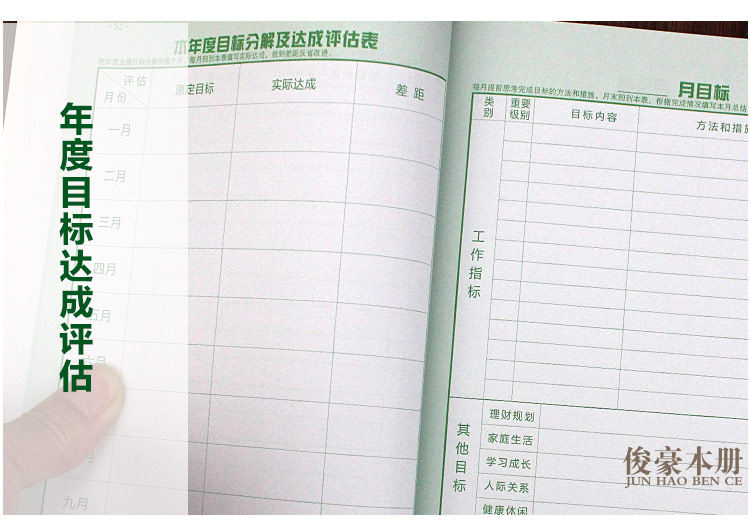 年度目标达成评估
· 50 ·
本年度目标分解及达成评估表
每月回到本表填写实际达成，找到差距反省改进。
评估
月份
原定目标
实际达成
差距
一月
二月
三月
四月
五月
六月
九月
月目标
每月提前思考完成目标的方法和措施，月末回到本表，根据完成情况填写本月总结
类别
重要级别
目标内容
方法和措施
工作指标
其他目标
理财规划
家庭生活
学习成长
人际关系
健康休闲
俊豪本册
JUN HAO BEN CE